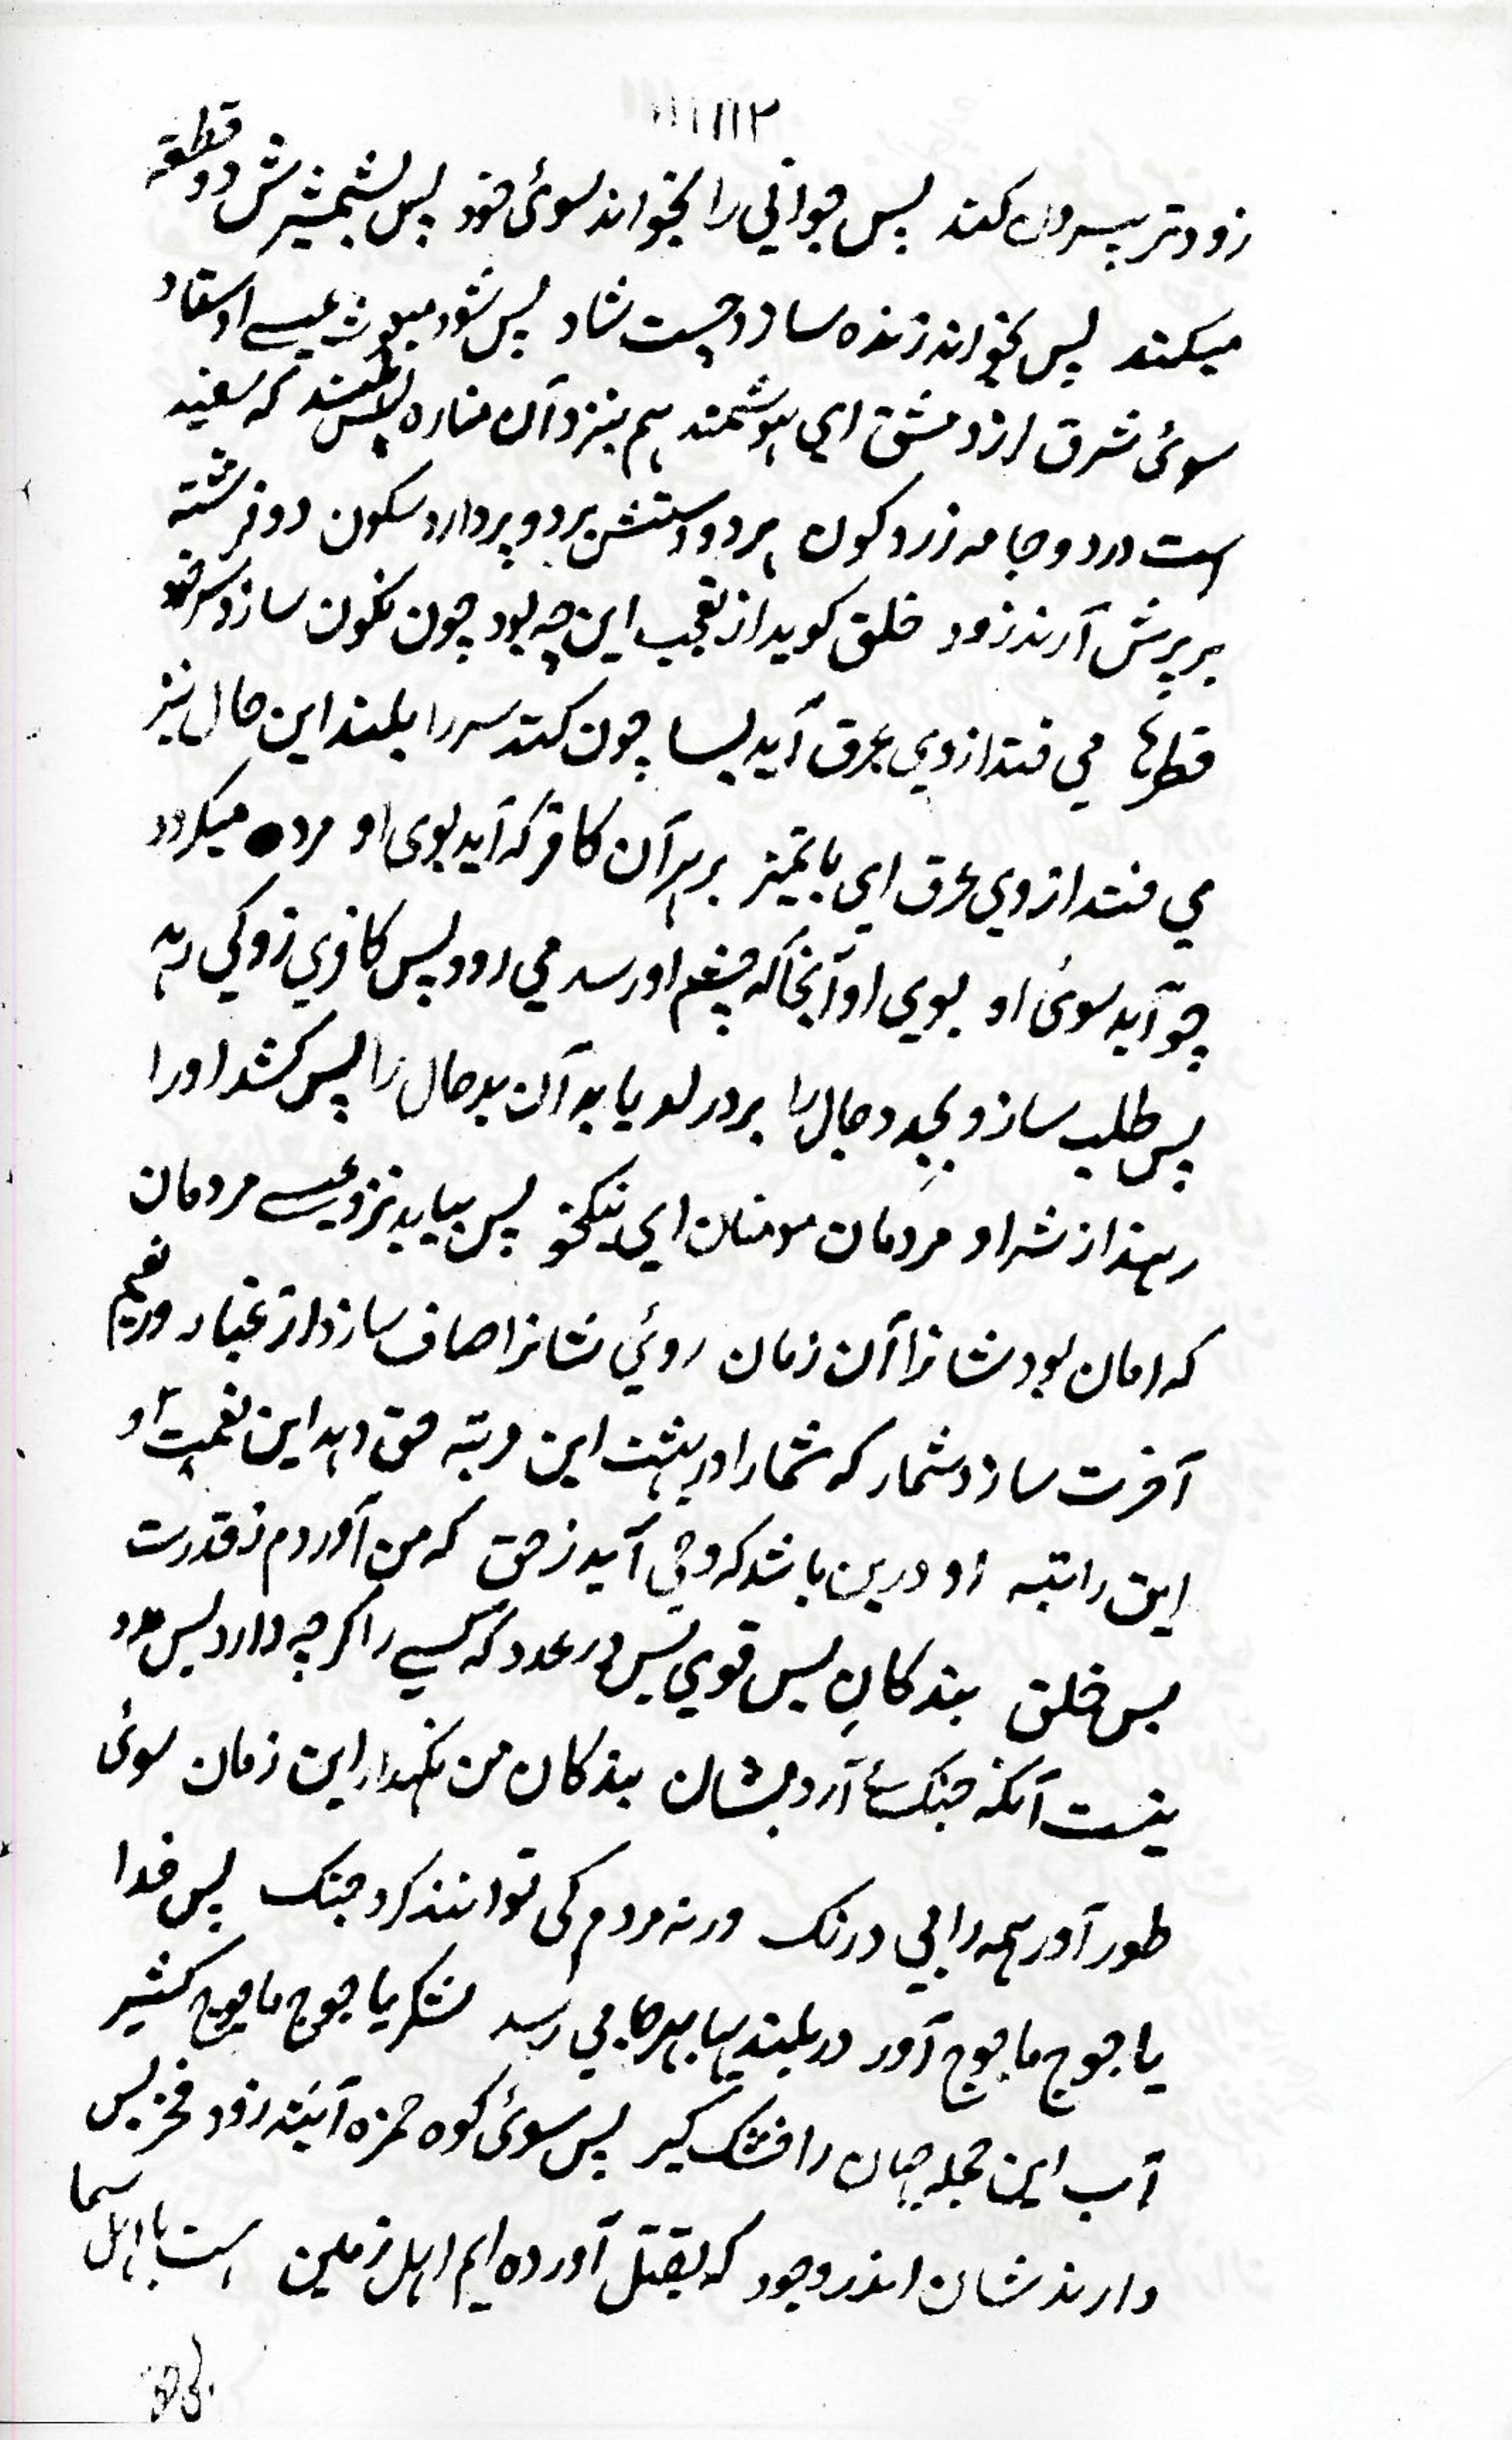 ۱۱۱۱۱۲
زودتر بیرون کند پس جوانی را بخواند سوئ خود پس بشمشیرش دو قطعه
میکند پس بخواند زنده سازد چست شاد پس شود مبعوث عیسے اوستاد
سوئ شرق از دمشق ای هوشمند هم بنزد آن مناره بس بلند که سفید
است در دو جامه زرد کون هر دو دستش بر دو پر دارد سکون دو فرشته
بر پرش آرند زود خلق کوید از تعجب این چه بود چون نکون سازد سر خود
قطرها می فتد از وی عرق آید بسا چون کند سر را بلند این حال نیز
می فتد از وی عرق ای باتمیز بر هر آن کافر که آید بوی او مرده میکردد
چو آید سوئ او بوی او آنجا که چشم او رسد می رود پس کافری زو کی رهد
پس طلب سازد بجد دجال را بر در لد یابد آن بدحال را پس کشد او را
رهند از شر او مردمان مومنان ای نیکخو پس بیاید نزد عیسے مردمان
که امان بود شانرا آن زمان روئی شانرا صاف سازد از غبار ور نعیم
آخرت سازد شمار که شما را در بهشت این مرتبه حق دهد این نعمت او
این راتبه او درین باشد که وحی آید ز حق که من آوردم ز قدرت
بس خلق بندکان بس قوی بس در عدد که کسے را کرچه دارد بس مدد
نیست آنکه جنک آرد بشان بندکان من نکهدار این زمان سوئ
طور آور همه را بی درنک ورنه مردم کی توانند کرد جنک پس خدا
یاجوج ماجوج آور در بلندیها بهر جا می رسد لشکر یاجوج ماجوج کثیر
آب این جمله جهان را خشک کیر پس سوئ کوه حمزه آیند زود فخر بس
دارند شان اندر وجود که بقتل آورده ایم اهل زمین است با اهل سما